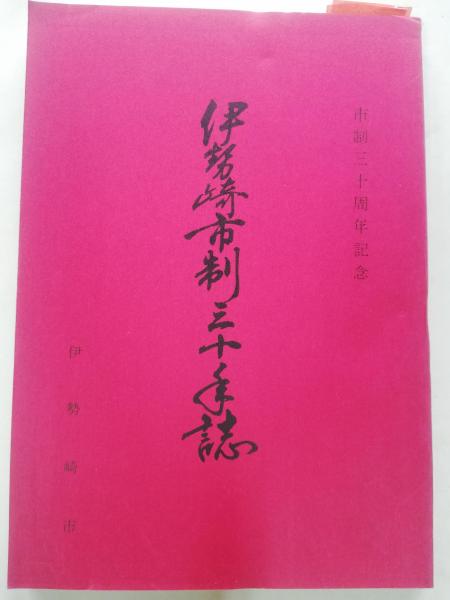 市制三十周年記念
伊勢崎市制三十年誌
伊勢崎市